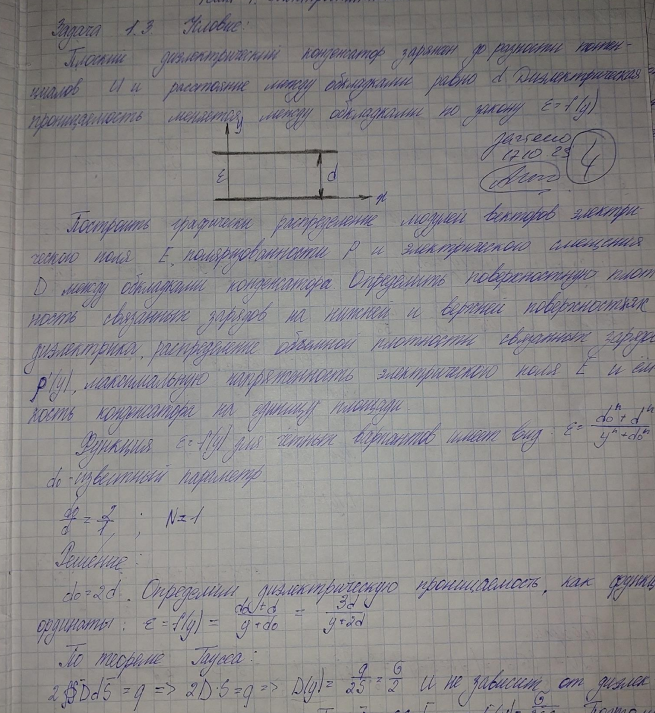 Задача 1.3 Условие:
Плоский диэлектрический конденсатор заряжен до разности потен-
циалов U и расстояние между обкладками равно d Диэлектрическая
проницаемость меняется между обкладками по закону ε=f(y)
y
зачтено
17 10 23
4
ε
d
x
Построить графически распределение модулей векторов электри
ческого поля E, поляризованности P и электрического смещения
D между обкладками конденсатора Определить поверхностную плот
ность связанных зарядов на нижней и верхней поверхностях
диэлектрика, распределение объемной плотности связанных заряда
ρ'(y), максимальную напряженность электрического поля E и ём
кость конденсатора на единицу площади.
Функция ε=f(y) для чётных вариантов имеет вид ε= (d₀ⁿ+dⁿ)/(yⁿ+d₀ⁿ)
d₀-известный параметр
d₀/d = 2/1 ; N=1
Решение:
d₀=2d. Определим диэлектрическую проницаемость, как функц
ординаты: ε=f(y)= (d₀+d)/(y+d₀) = 3d/(y+2d)
По теореме Гаусса:
DdS = q => 2D·S=q => D(y)= q/2S = σ/2 и не зависит от диэлек